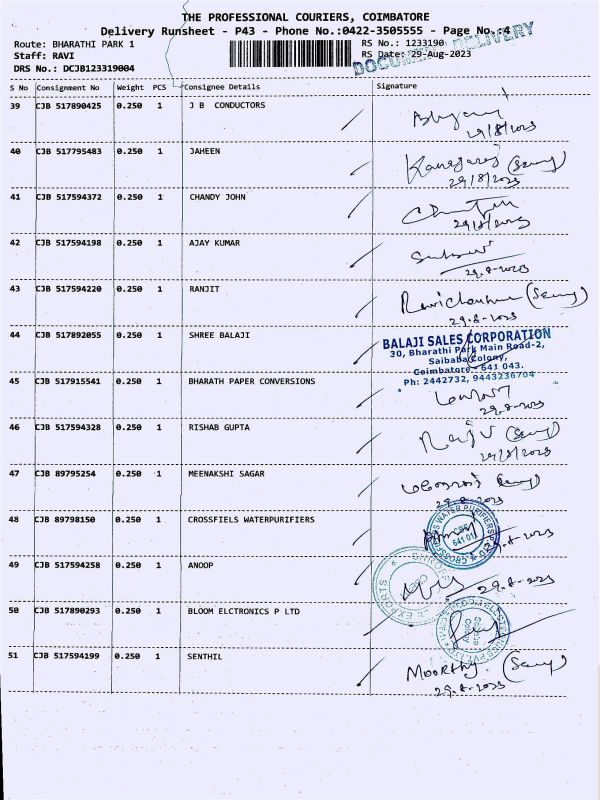 THE PROFESSIONAL COURIERS, COIMBATORE
Delivery Runsheet - P43 - Phone No.:0422-3505555 - Page No.:4
Route: BHARATHI PARK 1 RS No.: 1233190
Staff: RAVI RS Date: 29-Aug-2023
DOCUMENT DELIVERY
DRS No.: DCJB123319004
S No Consignment No Weight PCS Consignee Details Signature
39 CJB 517890425 0.250 1 J B CONDUCTORS
29/8/2023
40 CJB 517795483 0.250 1 JAHEEN
29/8/2023
41 CJB 517594372 0.250 1 CHANDY JOHN
29/8/2023
42 CJB 517594198 0.250 1 AJAY KUMAR
29.8.2023
43 CJB 517594220 0.250 1 RANJIT
29.8.2023
44 CJB 517892055 0.250 1 SHREE BALAJI
BALAJI SALES CORPORATION
30, Bharathi Park Main Road-2,
Saibaba Colony,
Coimbatore - 641 043.
Ph: 2442732, 9443236704
45 CJB 517915541 0.250 1 BHARATH PAPER CONVERSIONS
29.8.2023
46 CJB 517594328 0.250 1 RISHAB GUPTA
29/8/2023
47 CJB 89795254 0.250 1 MEENAKSHI SAGAR
29.8.2023
48 CJB 89798150 0.250 1 CROSSFIELS WATERPURIFIERS
29.8.2023
49 CJB 517594258 0.250 1 ANOOP
29.8.2023
50 CJB 517890293 0.250 1 BLOOM ELCTRONICS P LTD
51 CJB 517594199 0.250 1 SENTHIL
Moorthy
29.8.2023